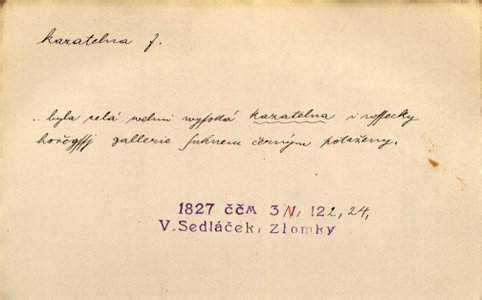 kazatelna f.
.. byla celá welmi wysoká kazatelna i wssecky
hořegssj gallerie suknem černým potaženy.
1827 ččm 3/V, 122, 24,
V. Sedláček, Zlomky